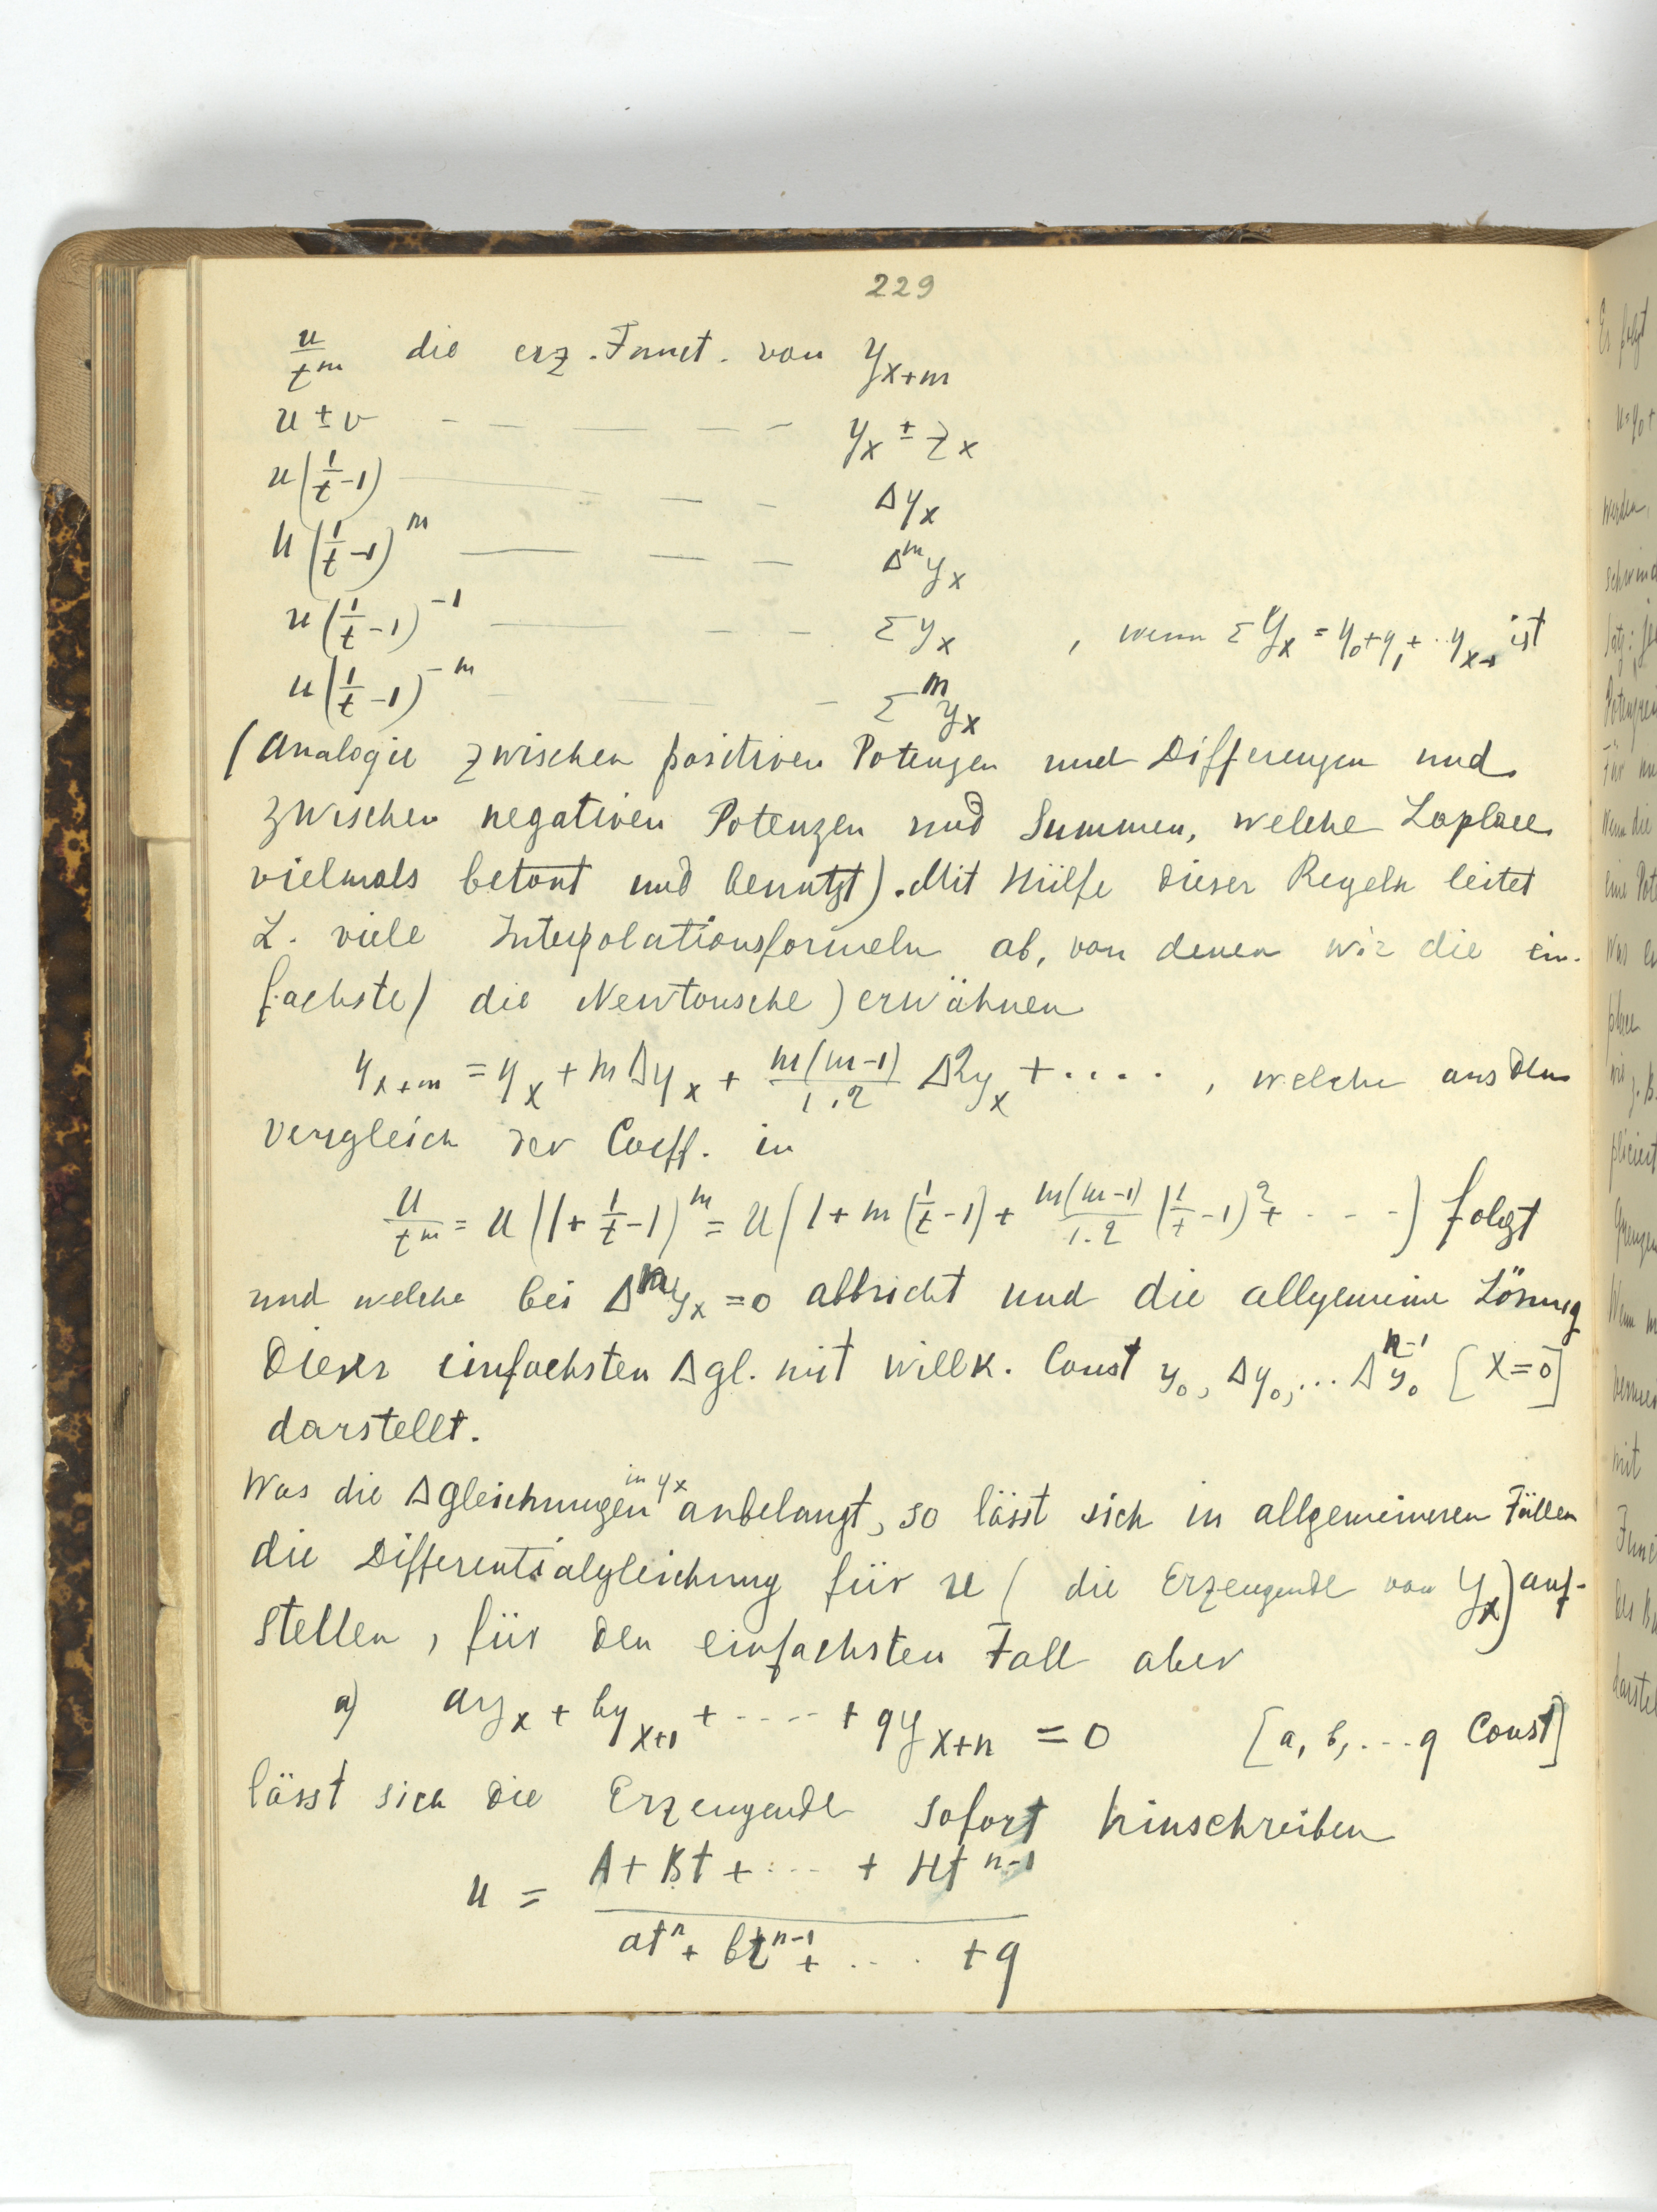 229
u/t^m die erz. Funct. von y_{x+m}
u ± v - — — — - y_x ± z_x
u(1/t - 1) — — - Δy_x
u(1/t - 1)^m — — - Δ^m y_x
u(1/t - 1)^{-1} — - - Σ y_x , wenn Σ y_x = y_0 + y_1 + .. y_{x-1} ist
u(1/t - 1)^{-m} - — - Σ^m y_x
(Analogie zwischen positiven Potenzen und Differenzen und
zwischen negativen Potenzen und Summen, welche Laplace
vielmals betont und benutzt). Mit Hülfe dieser Regeln leitet
L. viele Interpolationsformeln ab, von denen wir die ein-
fachste (die Newtonsche) erwähnen
y_{x+m} = y_x + mΔy_x + m(m-1)/1.2 Δ²y_x + .... , welche aus dem
Vergleich der Coeff. in
u/t^m = u(1 + 1/t - 1)^m = u(1 + m(1/t - 1) + m(m-1)/1.2 (1/t - 1)² + - - -) folgt
und welche bei Δ^n y_x = 0 abbricht und die allgemeine Lösung
dieser einfachsten Δgl. mit willk. Const y_0, Δy_0, ... Δ^{n-1} y_0 [x=0]
darstellt.
Was die Δgleichungen in y_x anbelangt, so lässt sich in allgemeineren Fällen
die Differentialgleichung für u (die Erzeugende von y_x) auf-
stellen, für den einfachsten Fall aber
a) ay_x + by_{x+1} + ---- + qy_{x+n} = 0 [a, b, ... q Const]
lässt sich die Erzeugende sofort hinschreiben
u = (A + Bt + ... + Ht^{n-1}) / (at^n + bt^{n-1} + ... . + q)